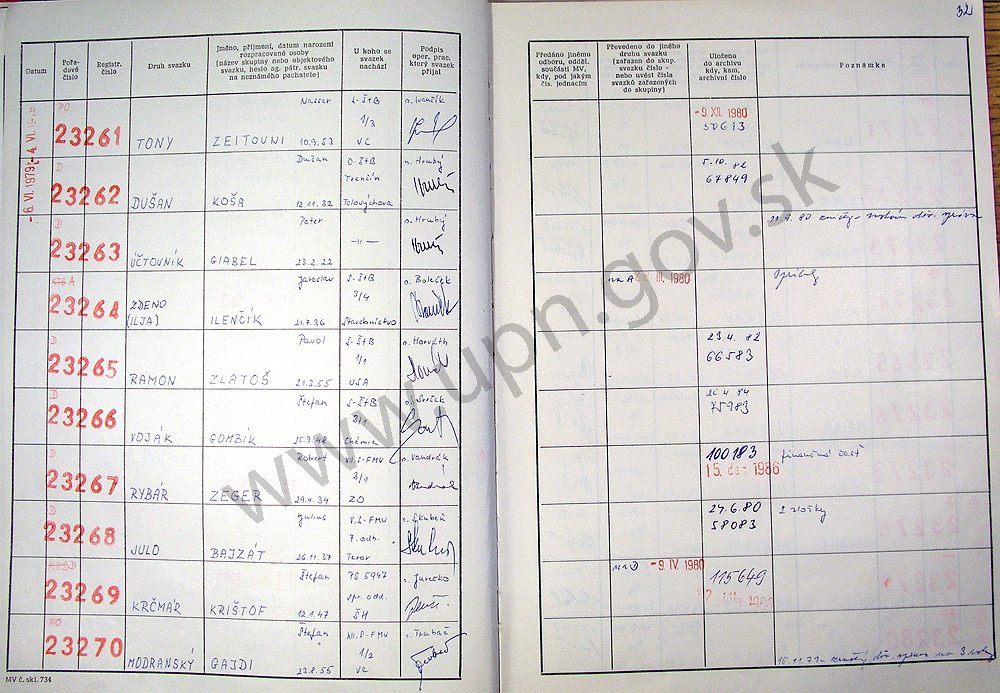 32
Datum
Pořadové číslo
Registr. číslo
Druh svazku
Jméno, příjmení, datum narození rozpracované osoby (název skupiny nebo objektového svazku, heslo ag. pátr. svazku na neznámého pachatele)
U koho se svazek nachází
Podpis oper. prac. který svazek přijal
Předáno jinému odboru, odděl. součásti MV, kdy, pod jakým čís. jednacím
Převedeno do jiného druhu svazku (zařazen do skup. svazku číslo - nebo uvést čísla svazků zařazených do skupiny)
Uloženo do archivu kdy, kam, archivní číslo
Poznámka
- 6. VI. 1979
PO
23261
TONY
Nasser
ZEITOUNI 10.9.53
S-ŠtB
1/3
VC
n. Ivančík
- 9. XII. 1980
50613
D
23262
DUŠAN
Dušan
KOŠA 12.11.32
O-ŠtB
Trenčín
Telovýchova
n. Hrubý
5.10.82
67849
D
23263
ÚČTOVNÍK
Peter
GIABEL 23.2.22
-"-
n. Hrubý
A
23264
ZDENO
(ILJA)
Jaroslav
ILENČÍK 21.7.36
S-ŠtB
3/4
Stavebníctvo
n. Boleček
na A
III. 1980
D
23265
RAMON
Pavol
ZLATOŠ 21.3.55
S-ŠtB
1/1
USA
n. Horváth
23.4.82
66583
D
23266
VOJÁK
Štefan
GOMBÍK
S-ŠtB
3/1
Chémia
26.4.84
75983
D
23267
RYBÁR
Robert
ZEGER 29.4.34
XII.S-FMV
3/1
ZO
n. Vandrák
100183
15. 1986
finančná časť
D
23268
JULO
Július
BAJZÁT 26.11.37
V.S-FMV
7. odb.
Teror
n. Skubeň
24.6.80
58083
2 zložky
D
23269
KRČMÁR
Štefan
KRIŠTOF 12.1.47
PS 5947
spr. odd.
ŠH
n. Jurečko
na D
- 9. IV. 1980
115649
PO
23270
MODRANSKÝ
Štefan
GAJDI 23.8.55
XII.S-FMV
1/2
VC
n. Trubač
16.11.79
MV č. skl. 734
www.upn.gov.sk